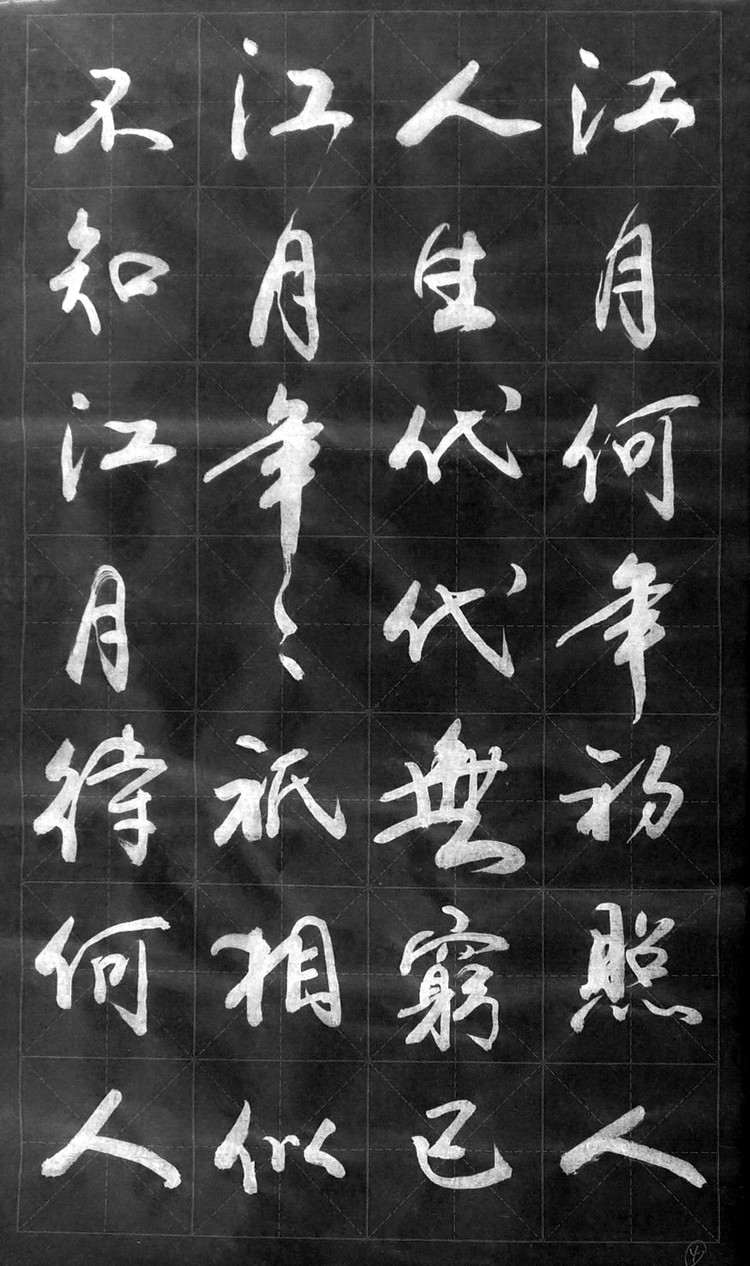 江月何年初照人
人生代代無窮已
江月年〻祇相似
不知江月待何人